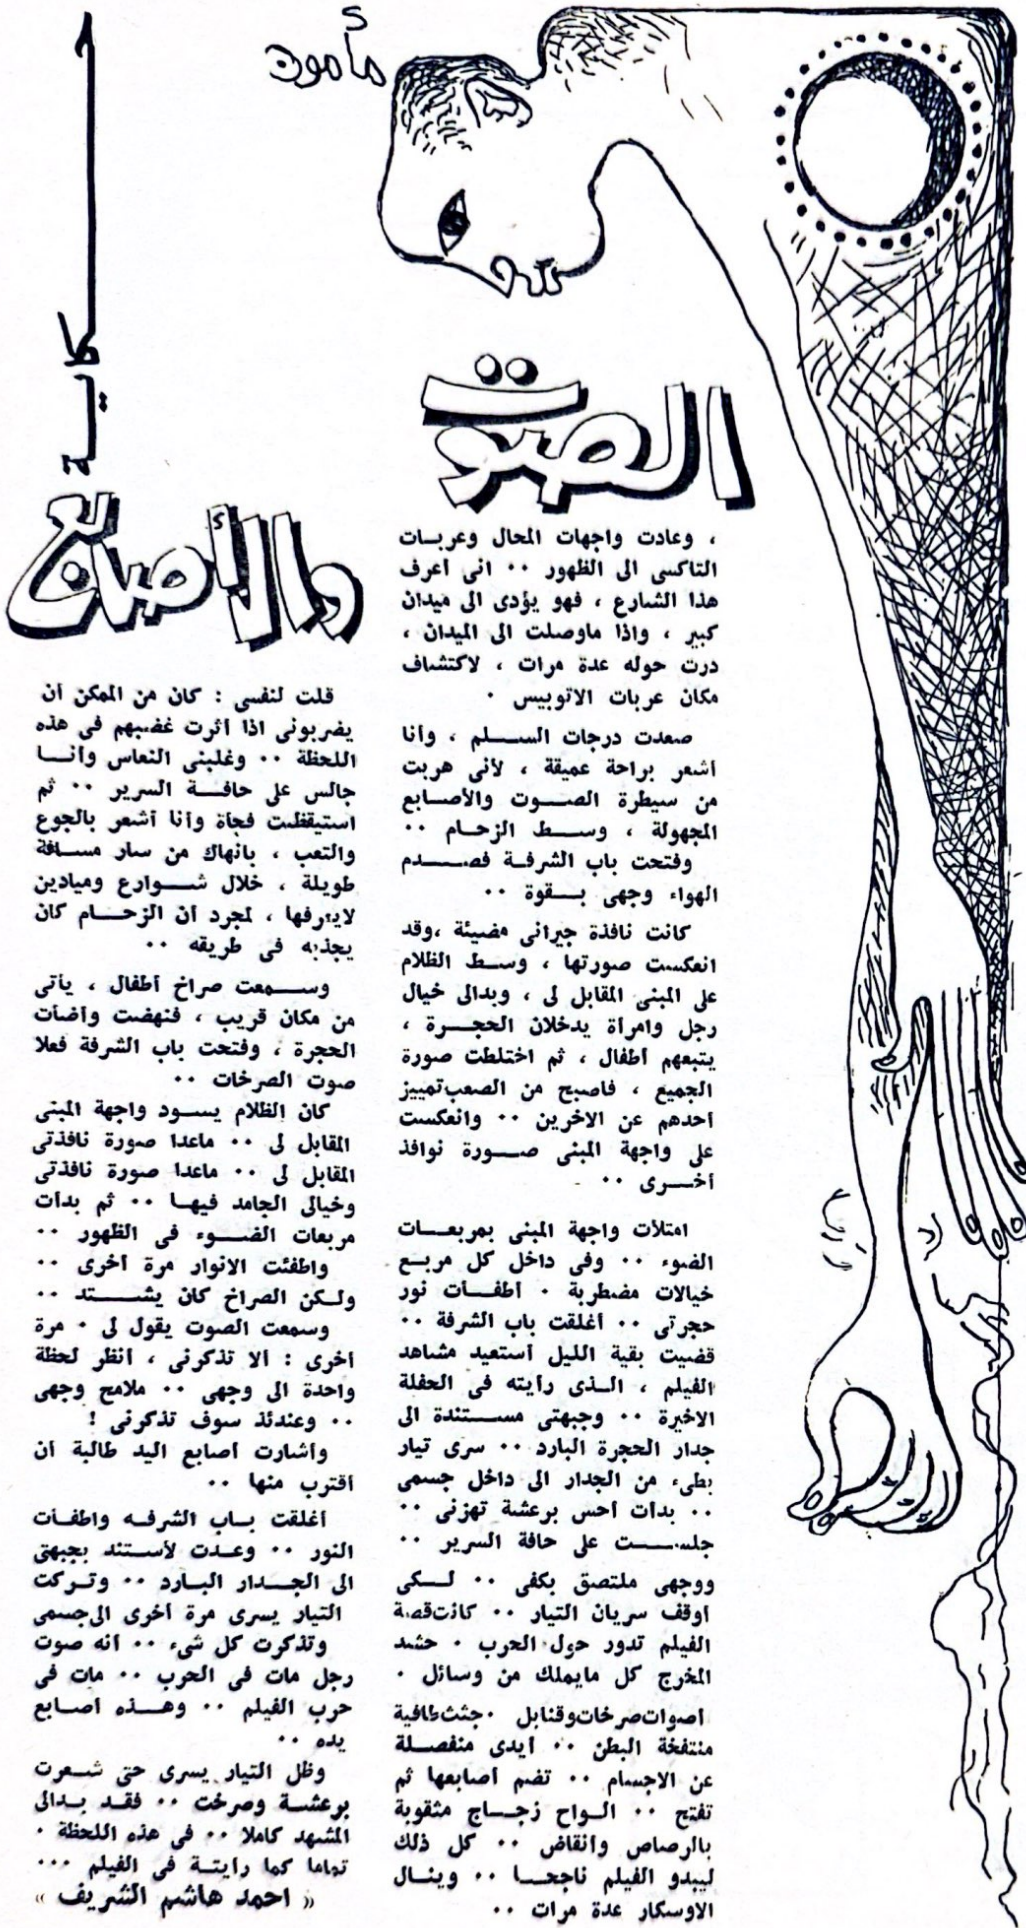 مأمون
حكاية
الصوت
والأصابع
، وعادت واجهات المحال وعربات
التاكسى الى الظهور ٠٠ انى أعرف
هذا الشارع ، فهو يؤدى الى ميدان
كبير ، واذا ماوصلت الى الميدان ،
درت حوله عدة مرات ، لاكتشاف
مكان عربات الاتوبيس ٠
صعدت درجات السلم ، وأنا
أشعر براحة عميقة ، لأنى هربت
من سيطرة الصوت والأصابع
المجهولة ، وسط الزحام ٠٠
وفتحت باب الشرفة فصدم
الهواء وجهى بقوة ٠٠
كانت نافذة جيرانى مضيئة ،وقد
انعكست صورتها ، وسط الظلام
على المبنى المقابل لى ، وبدالى خيال
رجل وامرأة يدخلان الحجرة ،
يتبعهم أطفال ، ثم اختلطت صورة
الجميع ، فاصبح من الصعب تمييز
أحدهم عن الاخرين ٠٠ وانعكست
على واجهة المبنى صورة نوافذ
أخرى ٠٠
امتلأت واجهة المبنى بمربعات
الضوء ٠٠ وفى داخل كل مربع
خيالات مضطربة ٠ أطفأت نور
حجرتى ٠٠ أغلقت باب الشرفة ٠٠
قضيت بقية الليل أستعيد مشاهد
الفيلم ، الذى رأيته فى الحفلة
الاخيرة ٠٠ وجبهتى مستندة الى
جدار الحجرة البارد ٠٠ سرى تيار
بطىء من الجدار الى داخل جسمى
٠٠ بدأت أحس برعشة تهزنى ٠٠
جلست على حافة السرير ٠٠
ووجهى ملتصق بكفى ٠٠ لكى
أوقف سريان التيار ٠٠ كانت قصة
الفيلم تدور حول الحرب ٠ حشد
المخرج كل مايملك من وسائل ٠
أصوات صرخات وقنابل ٠ جثث طافية
منتفخة البطن ٠٠ أيدى منفصلة
عن الاجسام ٠٠ تضم أصابعها ثم
تفتح ٠٠ الواح زجاج مثقوبة
بالرصاص وانقاض ٠٠ كل ذلك
ليبدو الفيلم ناجحا ٠٠ وينال
الاوسكار عدة مرات ٠٠
قلت لنفسى : كان من الممكن أن
يضربونى اذا أثرت غضبهم فى هذه
اللحظة ٠٠ وغلبنى النعاس وأنا
جالس على حافة السرير ٠٠ ثم
استيقظت فجأة وأنا أشعر بالجوع
والتعب ، بانهاك من سار مسافة
طويلة ، خلال شوارع وميادين
لايعرفها ، لمجرد أن الزحام كان
يجذبه فى طريقه ٠٠
وسمعت صراخ أطفال ، يأتى
من مكان قريب ، فنهضت وأضأت
الحجرة ، وفتحت باب الشرفة فعلا
صوت الصرخات ٠٠
كان الظلام يسود واجهة المبنى
المقابل لى ٠٠ ماعدا صورة نافذتى
المقابل لى ٠٠ ماعدا صورة نافذتى
وخيالى الجامد فيها ٠٠ ثم بدأت
مربعات الضوء فى الظهور ٠٠
واطفئت الانوار مرة أخرى ٠٠
ولكن الصراخ كان يشتد ٠٠
وسمعت الصوت يقول لى ٠ مرة
أخرى : ألا تذكرنى ، أنظر لحظة
واحدة الى وجهى ٠٠ ملامح وجهى
٠٠ وعندئذ سوف تذكرنى !
وأشارت أصابع اليد طالبة أن
أقترب منها ٠٠
أغلقت باب الشرفه واطفأت
النور ٠٠ وعدت لأستند بجبهتى
الى الجدار البارد ٠٠ وتركت
التيار يسرى مرة أخرى الى جسمى
وتذكرت كل شىء ٠٠ أنه صوت
رجل مات فى الحرب ٠٠ مات فى
حرب الفيلم ٠٠ وهذه أصابع
يده ٠٠
وظل التيار يسرى حتى شعرت
برعشة وصرخت ٠٠ فقد بدالى
المشهد كاملا ٠٠ فى هذه اللحظة ٠
تماما كما رأيتة فى الفيلم ٠٠٠
« احمد هاشم الشريف »